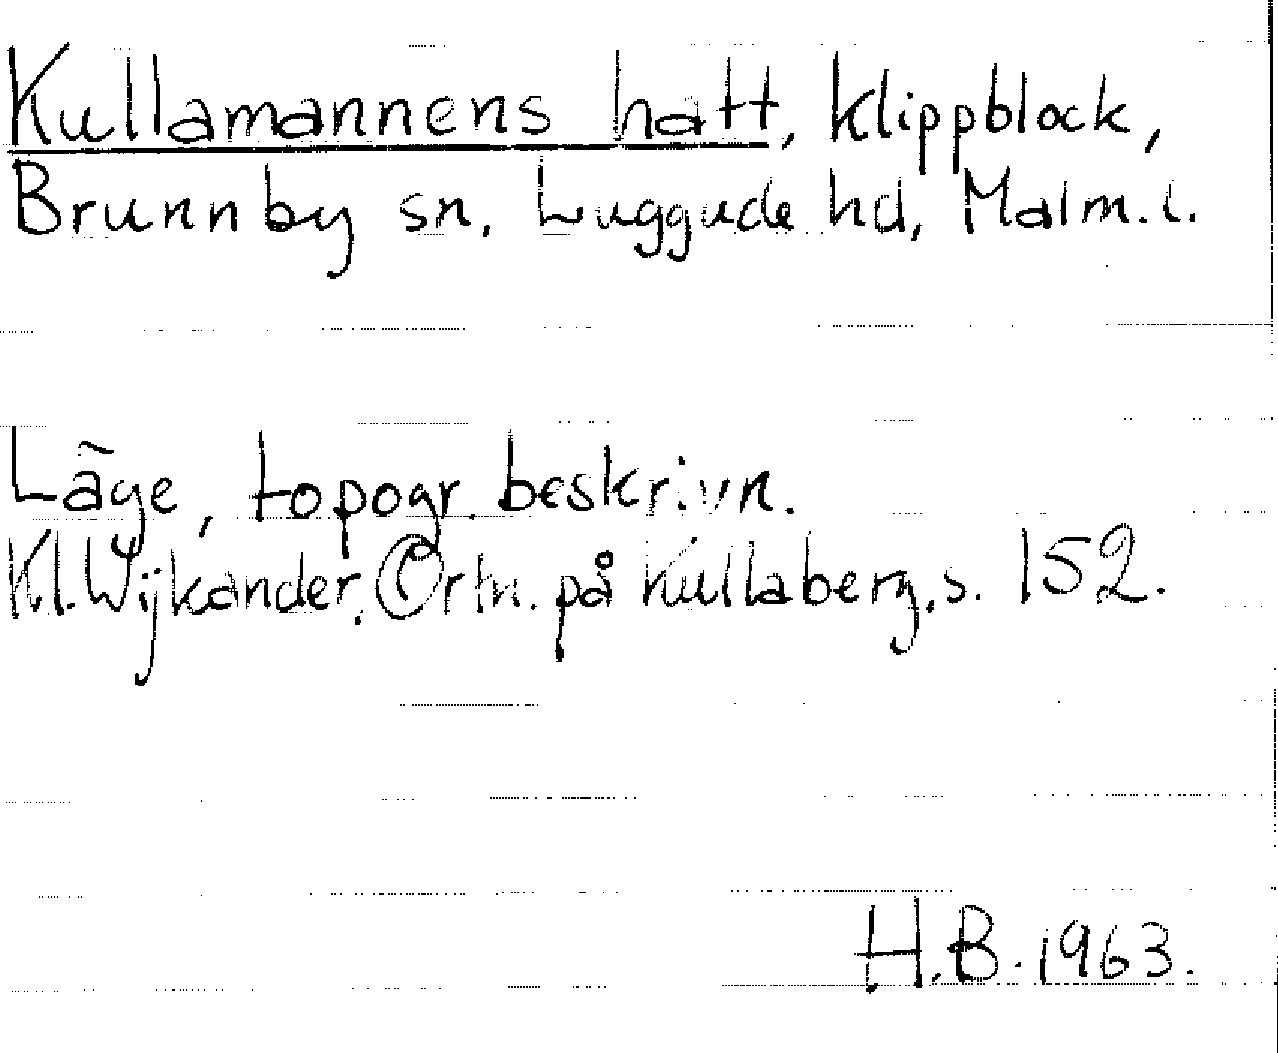 Kullamannens hatt, klippblock,
Brunnby sn, Luggude hd, Malm. l.
Läge, topogr. beskrivn.
Kl. Wijkander. Ortn. på Kullaberg, s. 152.
H.B. 1963.